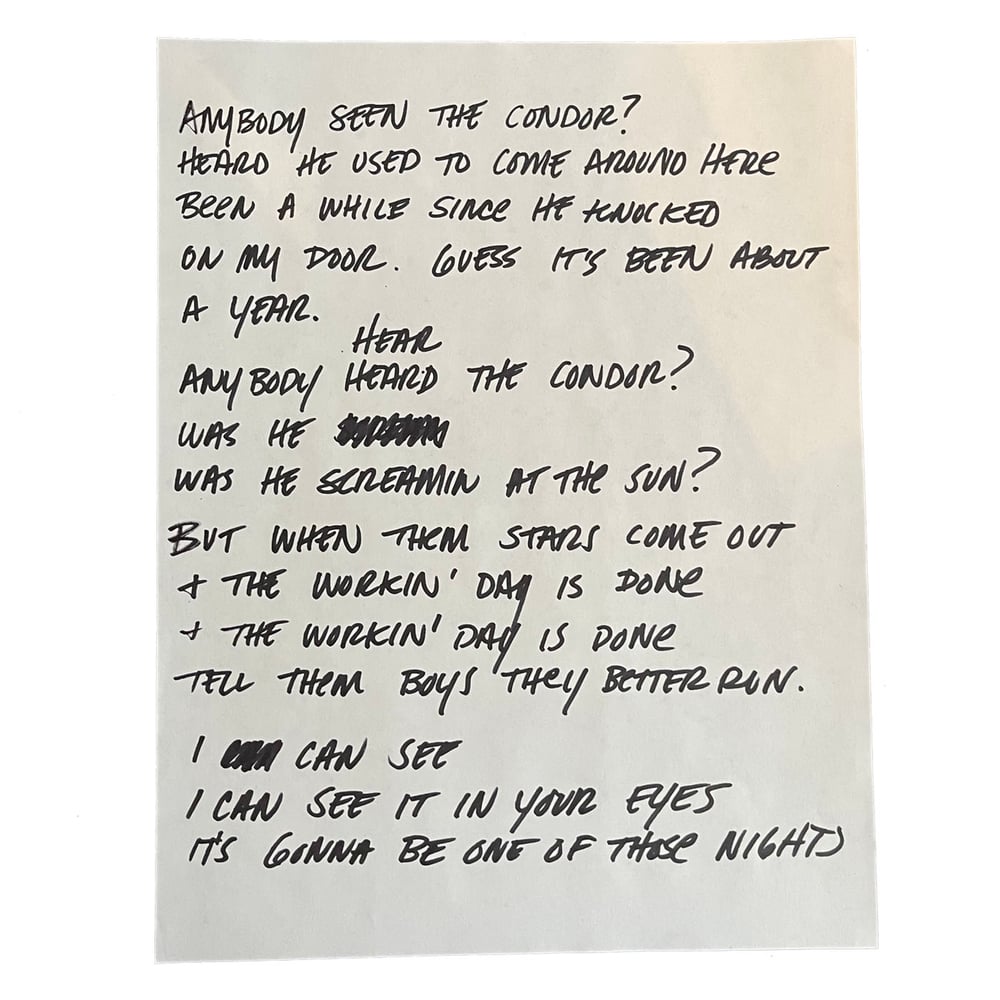 ANYBODY SEEN THE CONDOR?
HEARD HE USED TO COME AROUND HERE
BEEN A WHILE SINCE HE KNOCKED
ON MY DOOR. GUESS IT'S BEEN ABOUT
A YEAR.
HEAR
ANYBODY HEARD THE CONDOR?
WAS HE
WAS HE SCREAMIN AT THE SUN?
BUT WHEN THEM STARS COME OUT
+ THE WORKIN' DAY IS DONE
+ THE WORKIN' DAY IS DONE
TELL THEM BOYS THEY BETTER RUN.
I CAN SEE
I CAN SEE IT IN YOUR EYES
IT'S GONNA BE ONE OF THOSE NIGHTS